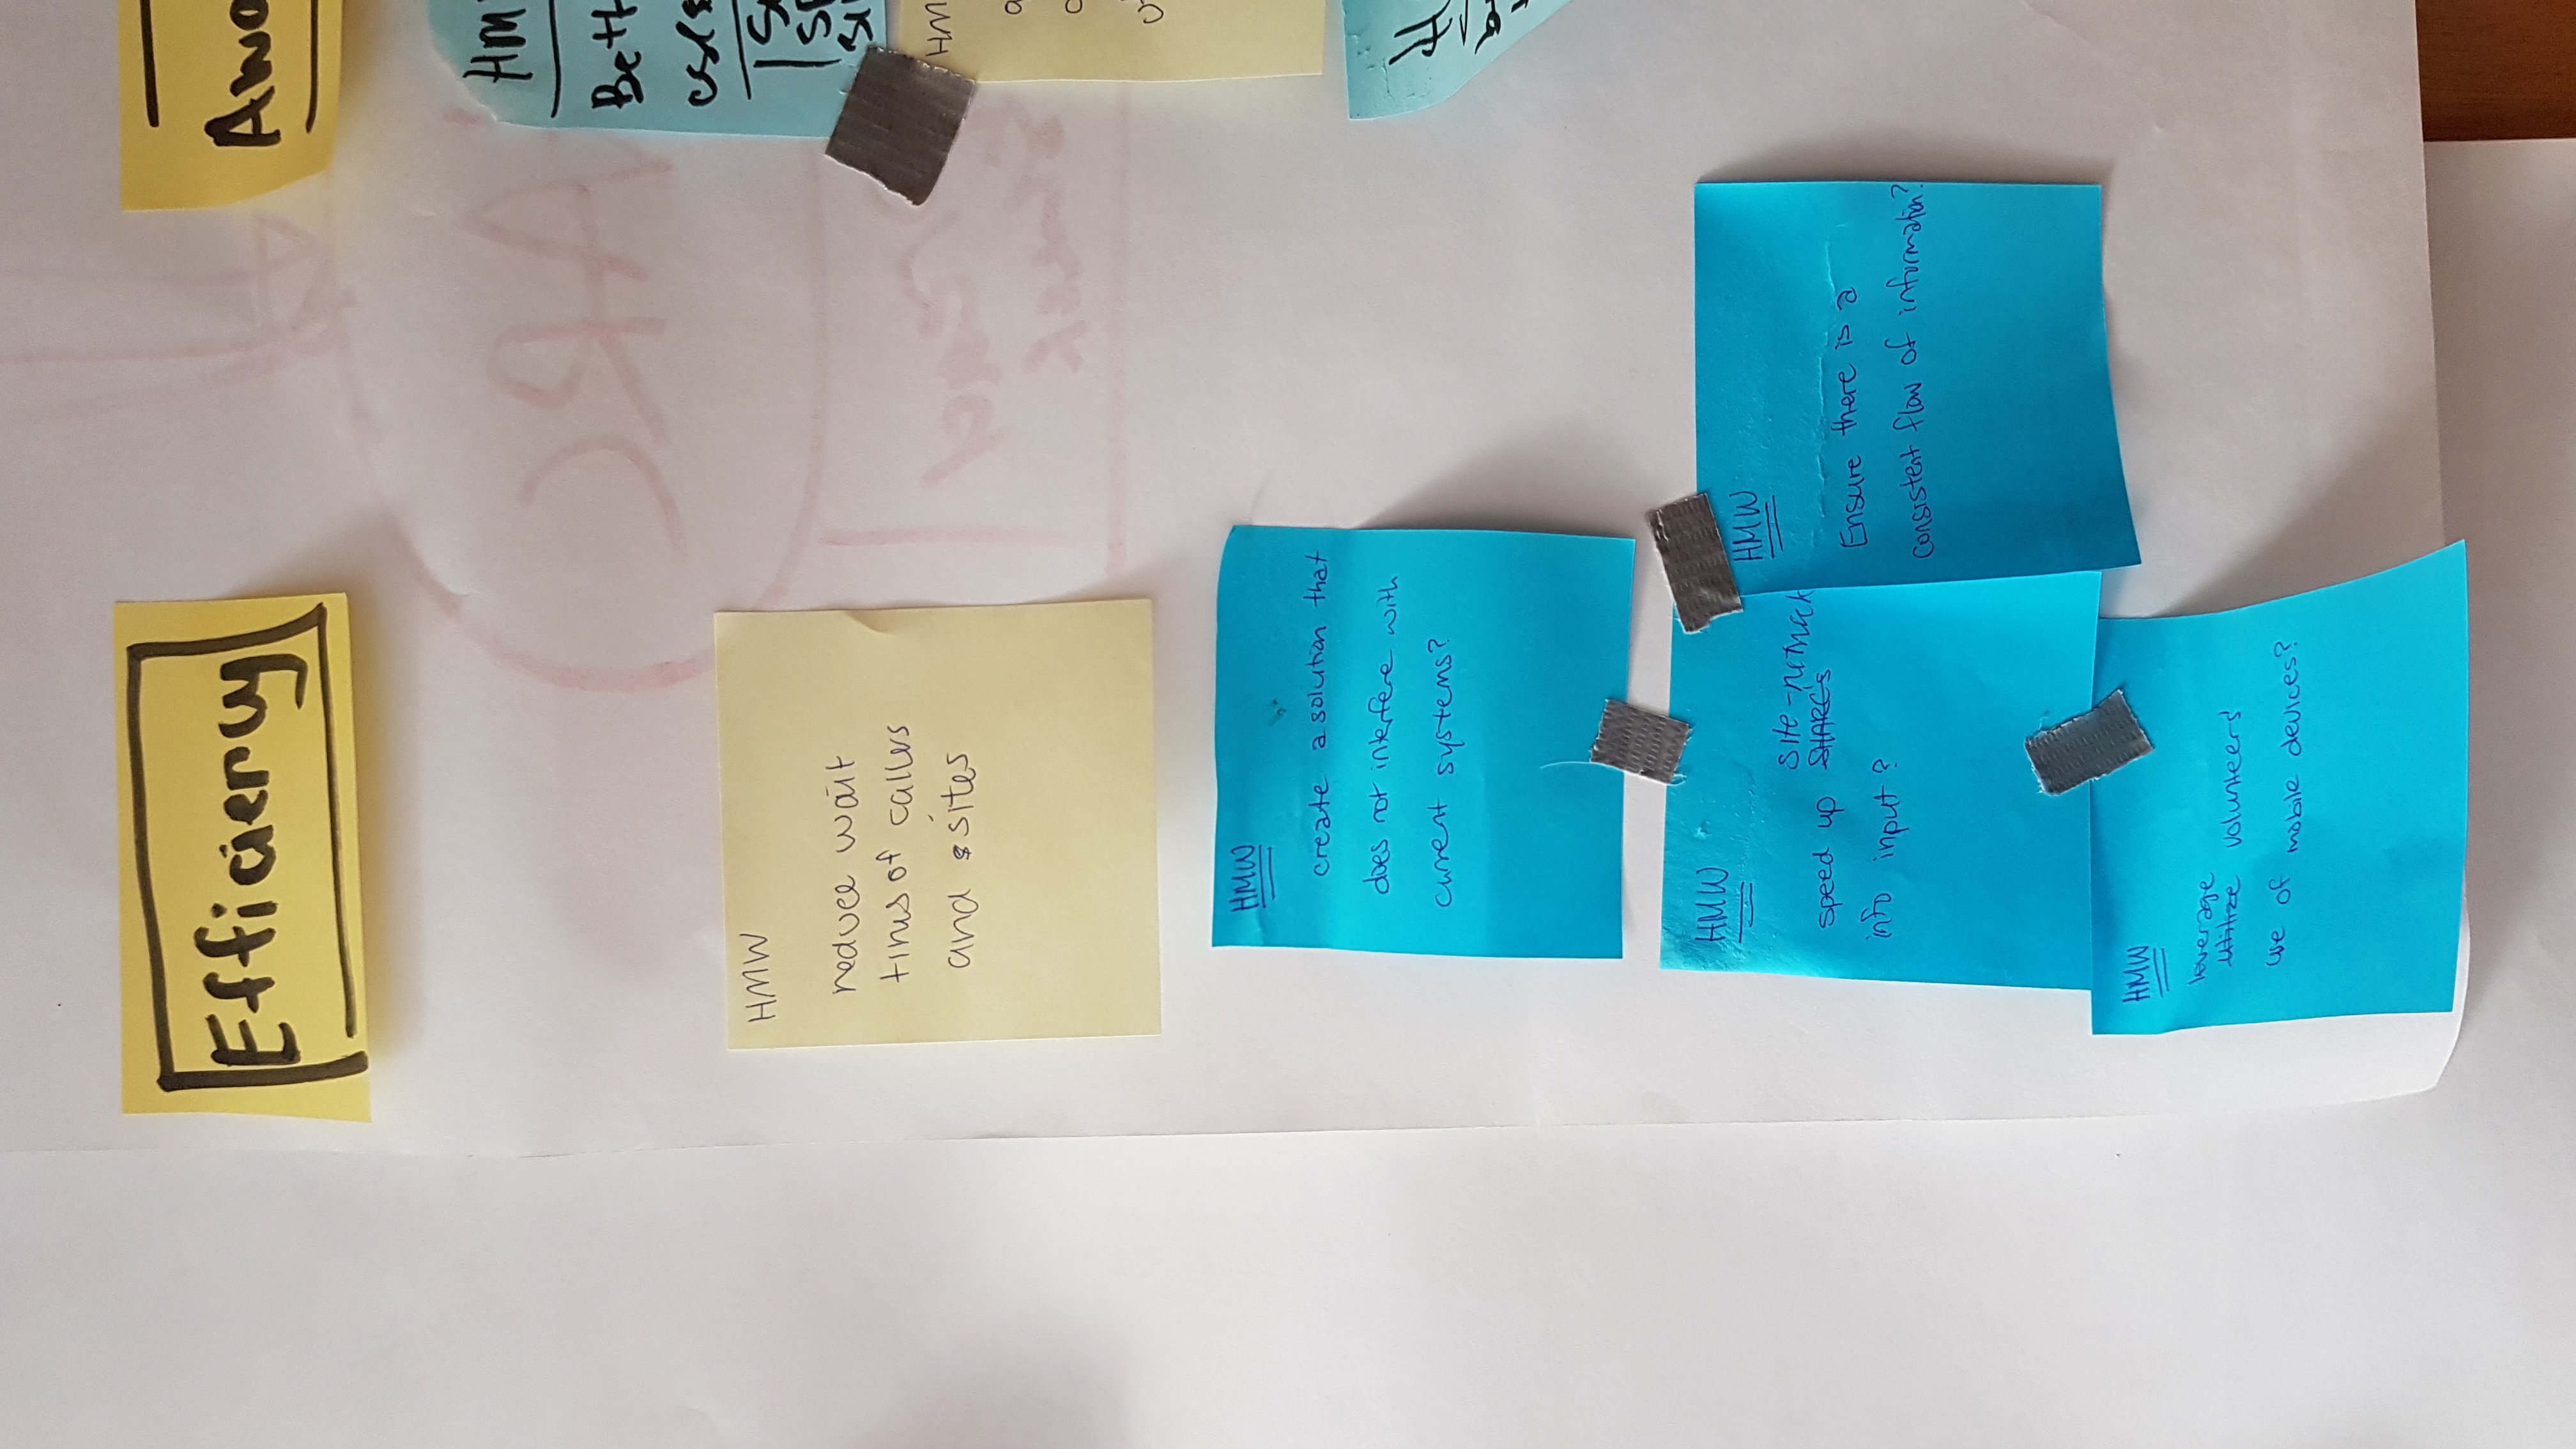 Efficiency
HMW
reduce wait
times of callers
and sites
HMW
create a solution that
does not interfere with
current systems?
HMW
site-network
speed up SHARC's
info input?
HMW
Ensure there is a
consistent flow of information?
HMW
leverage
utilize volunteers'
use of mobile devices?
Awa
HM
Bett
HM
ARC